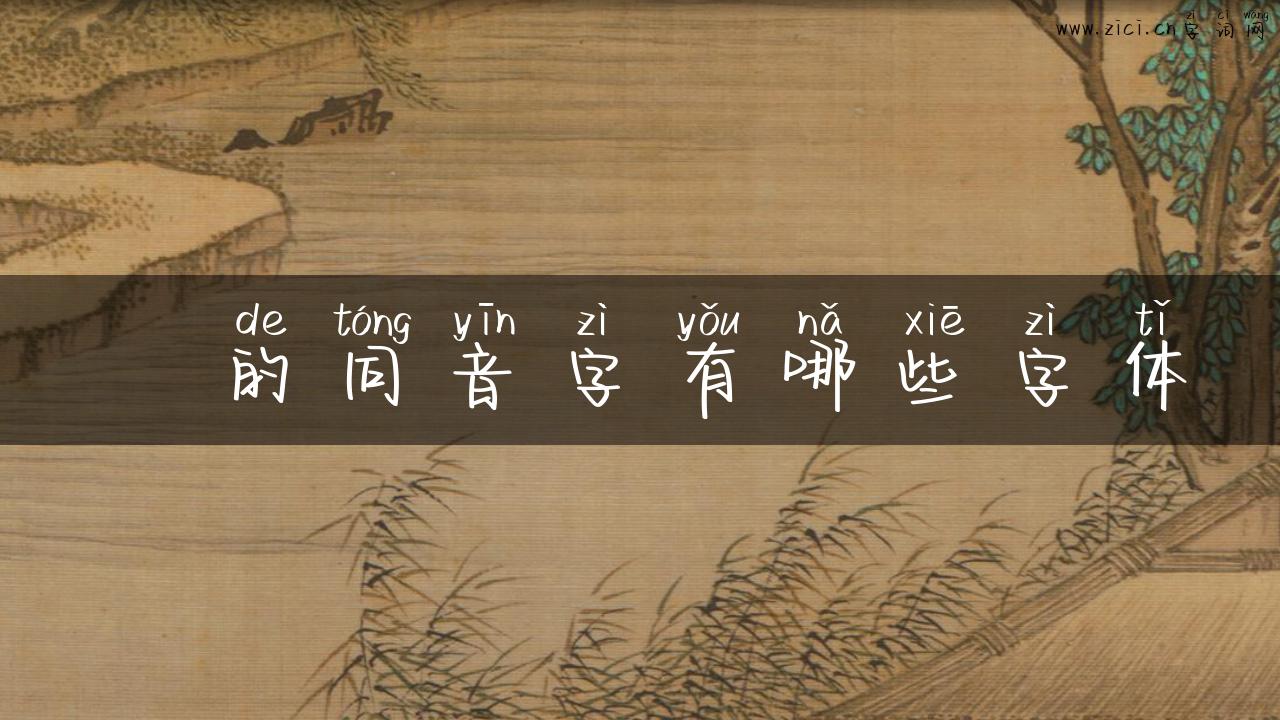 zì cí wǎng
www.zici.cn字词网
de tóng yīn zì yǒu nǎ xiē zì tǐ
的同音字有哪些字体